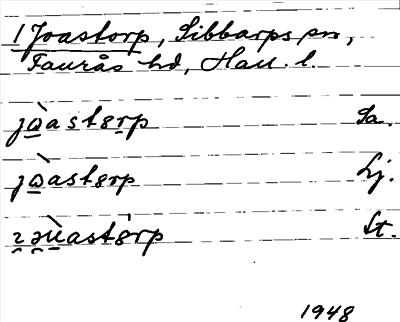 1 Joastorp, Sibbarps sn,
Faurås hd, Hall. l.
jò̠astɵrp Sa.
jò̠astɵrp Lj.
St.
1948